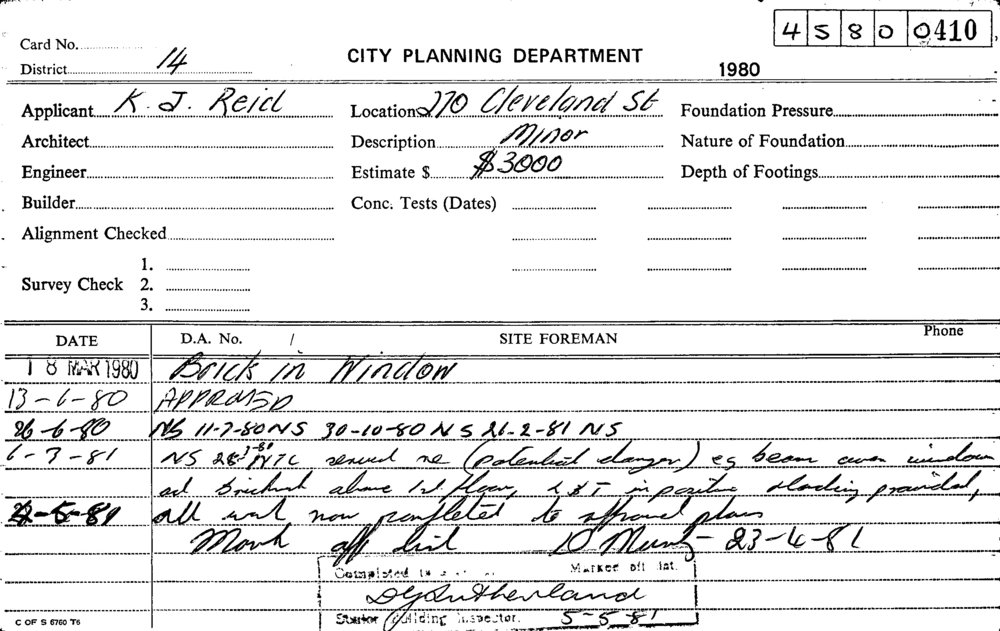 4 5 8 0 0410
Card No.
CITY PLANNING DEPARTMENT
District 14
1980
Applicant K. J. Reid Location 270 Cleveland St Foundation Pressure
Architect Description Minor Nature of Foundation
Engineer Estimate $ $3000 Depth of Footings
Builder Conc. Tests (Dates)
Alignment Checked
1.
Survey Check 2.
3.
DATE D.A. No. / SITE FOREMAN Phone
18 MAR 1980 Brick in Window
13-6-80 APPROVED
26-6-80 NS 11-7-80 NS 30-10-80 NS 21-2-81 NS
6-3-81 NS served re (potential danger) eg beam over window
above 1st floor, in position provided,
-5-81 all work now completed to plans
Mark off list 23-4-81
Completed Marked off list.
DGSutherland
Building Inspector. 5-5-81
C OF S 6760 T6